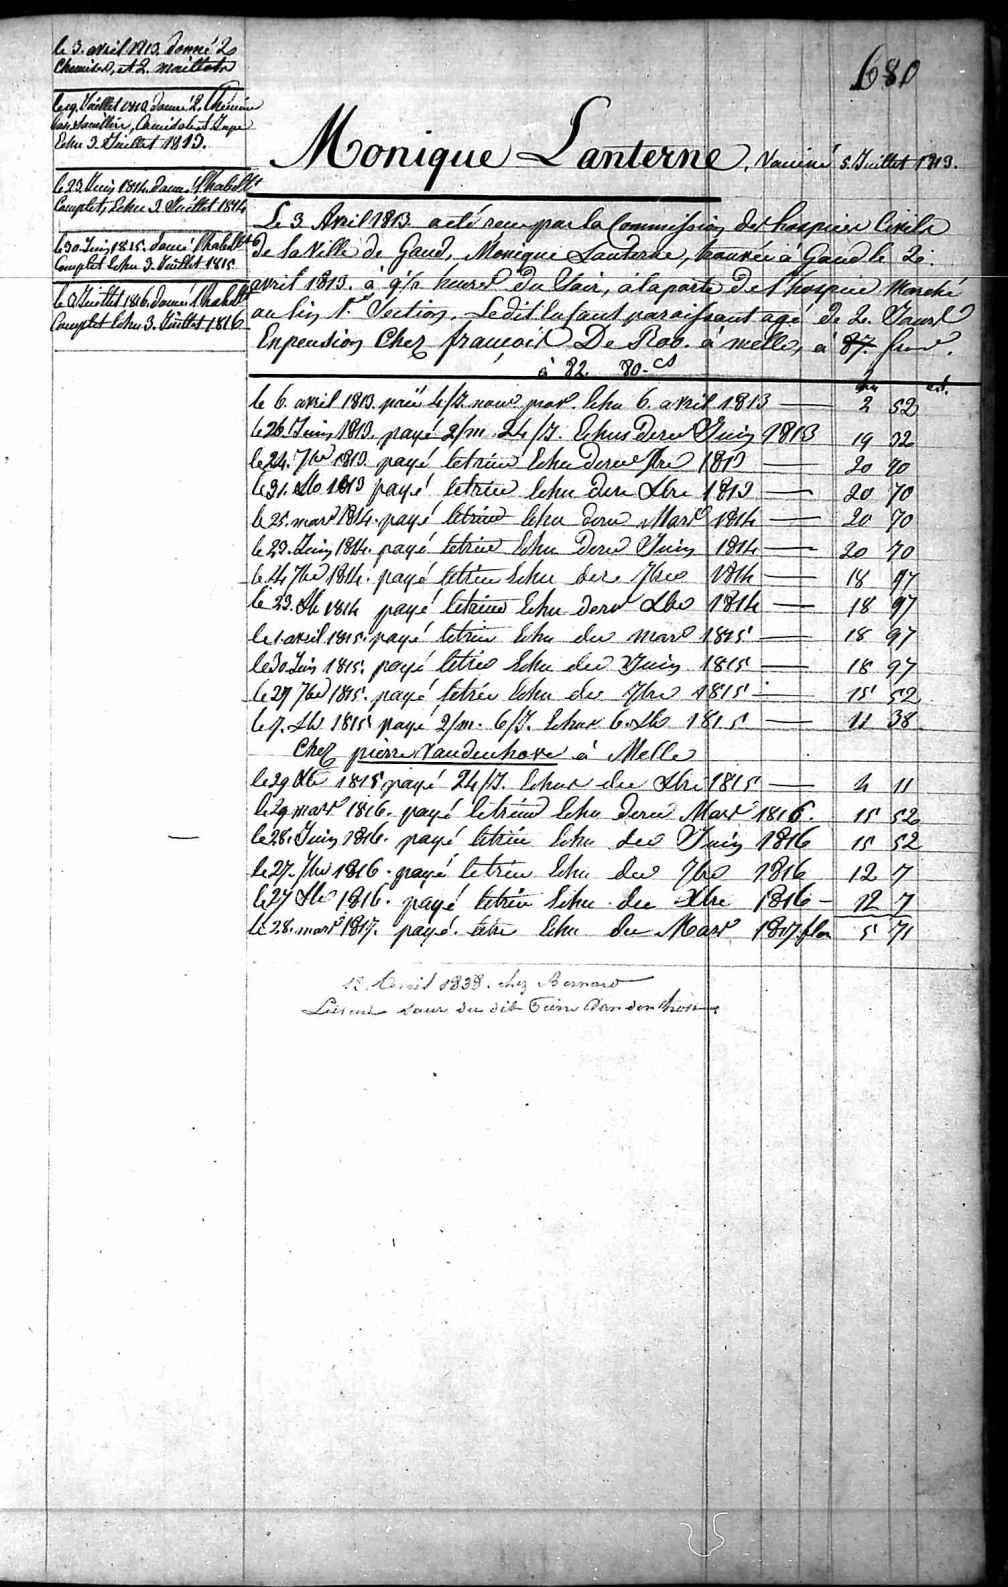 680
le 3. avril 1813. donné 2
Chemises, et 2. maillots
le 19. Juillet 1813 donné 2. Chemises
Echu 3 Juillet 1813.
le 23 Juin 1814. donné l'habillt
Complet, Echu 3 Juillet 1814
le 30 Juin 1815. donné l'habillt
Complet Echu 3. Juillet 1815
le 3 Juillet 1816. donné l'habillt
Complet Echu 3. Juillet 1816
Monique Lanterne, Vacciné 5. Juillet 1813.
Le 3 Avril 1813 a été reçu par la Commission des hospices Civils
de la Ville de Gand, Monique Lanterne, trouvée à Gand le 2.
avril 1813. à 9 1/2 heures du Soir, à la porte de l'hospice Marché
au lin 1re Section, Ledit Enfant paroissant agé de 2. Jours
En pension Chez françois De Roo. à melle, à 87. francs.
à 82. 80. cs
le 6. avril 1813. payé 4/J. nour. prov. Echu 6. avril 1813 — 2 52
le 26. Juin 1813. payé 2/m 24/J. Echus derer Juin 1813 19 32
le 24. 7bre 1813. payé letrim Echu derer 7bre 1813 — 20 70
le 31. Xbre 1813 payé letrim Echu derer Xbre 1813 — 20 70
le 25. mars 1814. payé letrim Echu derer Mars 1814 — 20 70
le 23. Juin 1814. payé letrim Echu derer Juin 1814 — 20 70
le 24 7bre 1814. payé letrim Echu der 7bre 1814 — 18 97
le 23. Xbre 1814 payé letrim Echu der Xbre 1814 — 18 97
le 1. avril 1815. payé letrim Echu der mars 1815 — 18 97
le 30 Juin 1815. payé letrim Echu der Juin 1815 — 18 97
le 27 7bre 1815. payé letrim Echu der 7bre 1815 — 15 52
le 7. Xbre 1815 payé 2/m. 6/J. Echus 6. Xbre 1815 — 11 38
Chez pierre Vandenhove à Melle
le 29 Xbre 1815 payé 24/J. Echus der Xbre 1815 — 4 11
le 29 mars 1816. payé letrim Echu derer Mars 1816. 15 52
le 28. Juin 1816. payé letrim Echu der Juin 1816 15 52
le 27. 7bre 1816. payé letrim Echu der 7bre 1816 12 7
le 27 Xbre 1816. payé letrim Echu der Xbre 1816 — 12 7
le 28. mars 1817. payé letrim Echu der Mars 1817 flor 5 71
12 Avril 1838. chez Bernard
soeur du dit